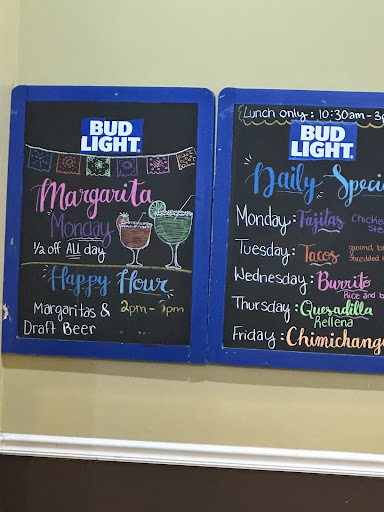 BUD
LIGHT
Margarita
Monday
1/2 off ALL day
Happy Hour
Margaritas & 2pm-
Draft Beer
Lunch only: 10:30am-3p
BUD
LIGHT
Daily Speci
Monday: Fajitas Chicke
Stea
Tuesday: Tacos ground b
Shredded c
Wednesday: Burrito
Rice and b
Thursday: Quesadilla
Rellena
Friday: Chimichang